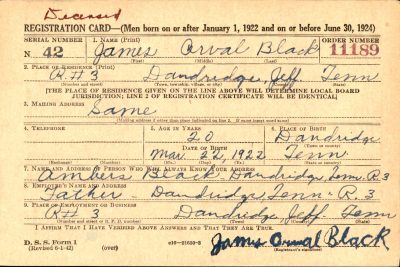 Deceased
REGISTRATION CARD—(Men born on or after January 1, 1922 and on or before June 30, 1924)
SERIAL NUMBER 1. NAME (Print) ORDER NUMBER
N 42 James Orval Black 11189
(First) (Middle) (Last)
2. PLACE OF RESIDENCE (Print)
R#3 Dandridge, Jeff. Tenn
(Number and street) (Town, township, village, or city) (County) (State)
[THE PLACE OF RESIDENCE GIVEN ON THE LINE ABOVE WILL DETERMINE LOCAL BOARD
JURISDICTION; LINE 2 OF REGISTRATION CERTIFICATE WILL BE IDENTICAL]
3. MAILING ADDRESS
Same
(Mailing address if other than place indicated on line 2. If same insert word same)
4. TELEPHONE 5. AGE IN YEARS 6. PLACE OF BIRTH
20 Dandridge
DATE OF BIRTH (Town or county)
Mar. 22, 1922 Tenn
(Exchange) (Number) (Mo.) (Day) (Yr.) (State or country)
7. NAME AND ADDRESS OF PERSON WHO WILL ALWAYS KNOW YOUR ADDRESS
Black Dandridge, Tenn. R.3
8. EMPLOYER'S NAME AND ADDRESS
Father Dandridge Tenn. R.3
9. PLACE OF EMPLOYMENT OR BUSINESS
R#3 Dandridge Jeff. Tenn
(Number and street or R. F. D. number) (Town) (County) (State)
I AFFIRM THAT I HAVE VERIFIED ABOVE ANSWERS AND THAT THEY ARE TRUE.
D. S. S. Form 1 (over) James Orval Black
(Revised 6-1-42)